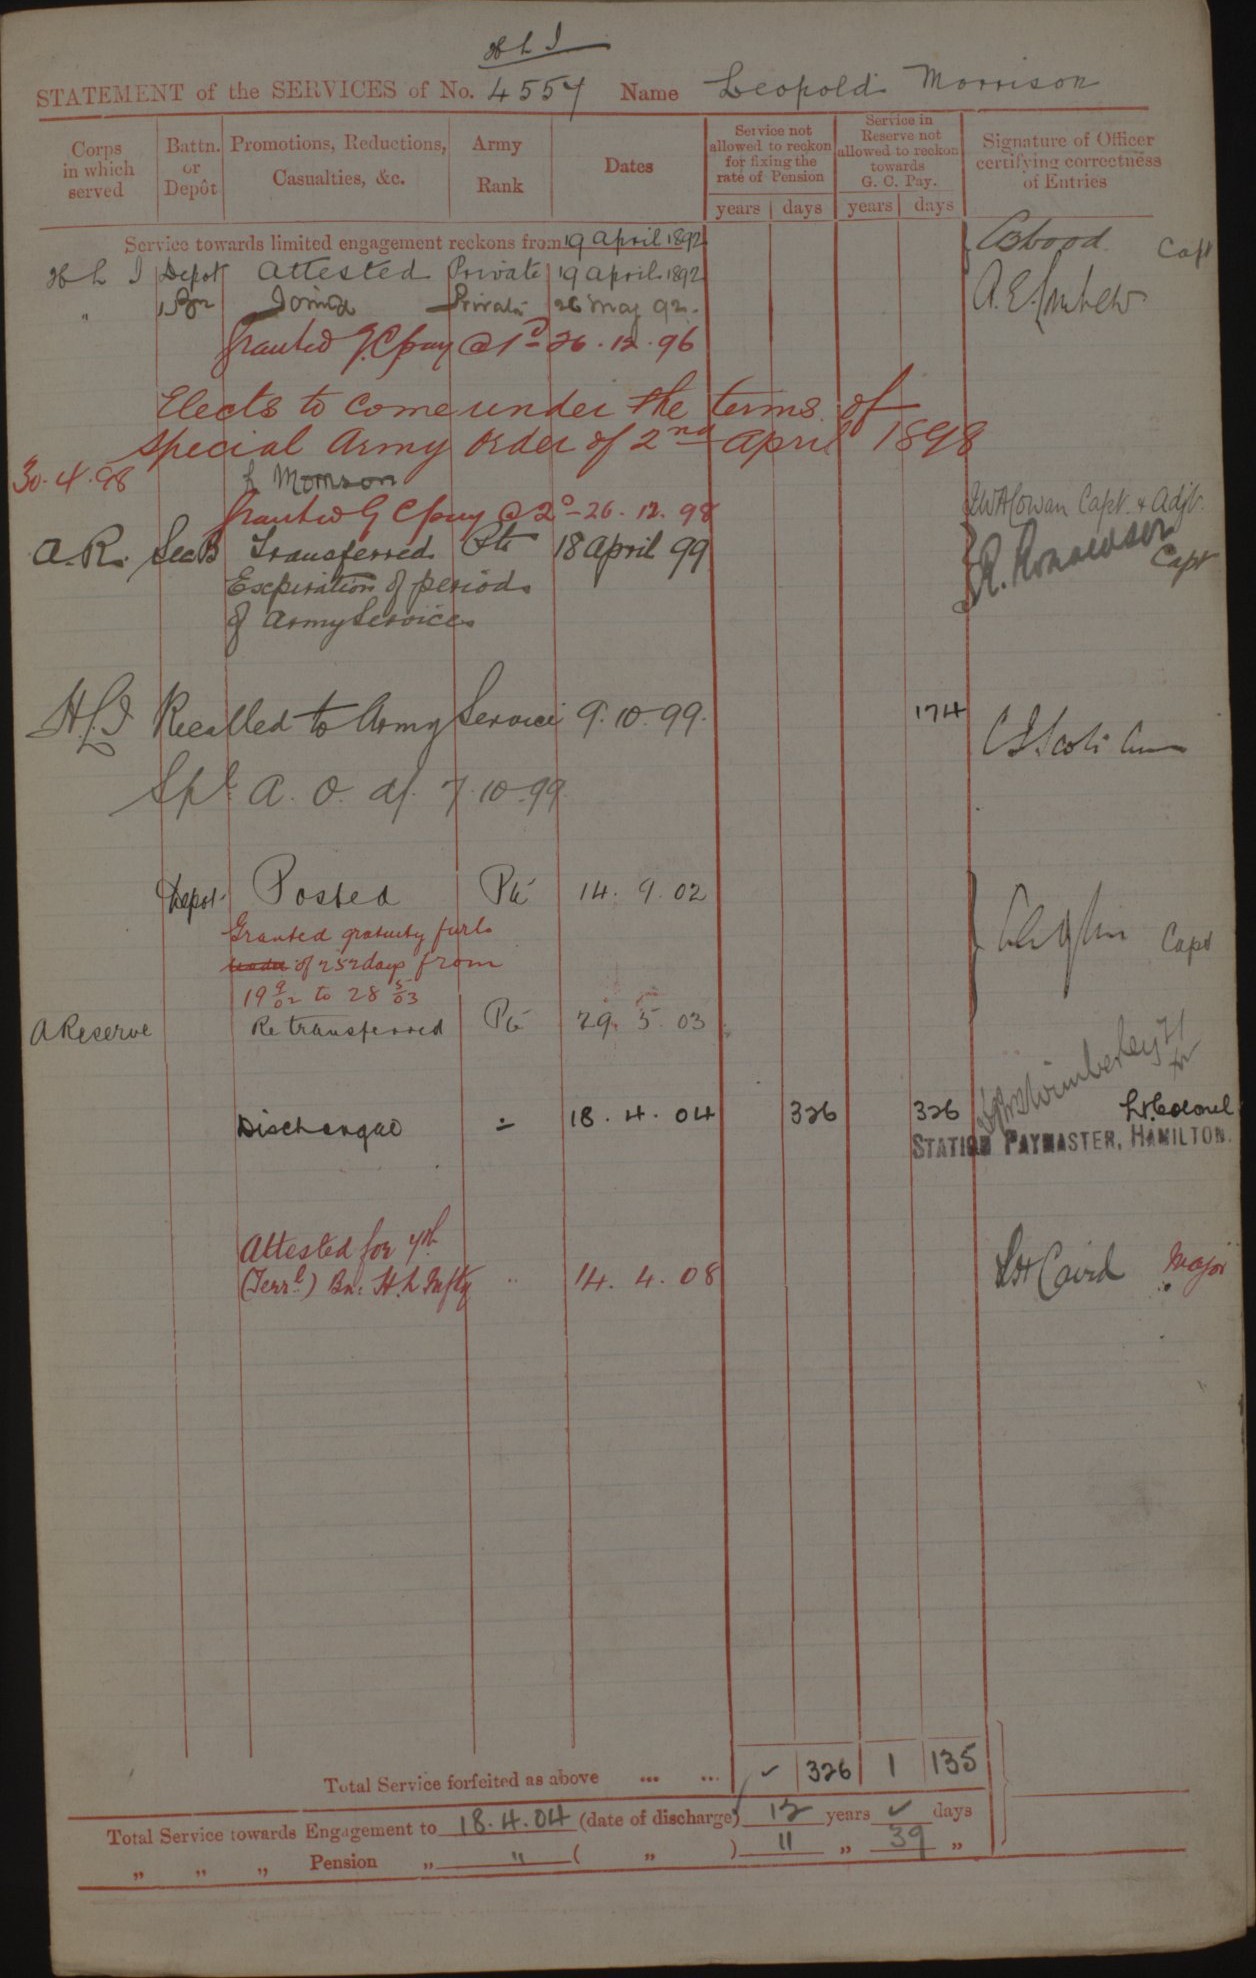 H L I
STATEMENT of the SERVICES of No. 4557 Name Leopold Morrison
Corps in which served
Battn. or Depôt
Promotions, Reductions, Casualties, &c.
Army Rank
Dates
Service not allowed to reckon for fixing the rate of Pension
years days
Service in Reserve not allowed to reckon towards G. C. Pay.
years days
Signature of Officer certifying correctness of Entries
Service towards limited engagement reckons from 19 April 1892
H L I Depot Attested Private 19 April 1892 Capt
" 1 Bn Joined Private 26 May 92.
Granted G C pay @ 1d 26.12.96
Elects to come under the terms of
special Army Order of 2nd April 1898
30.4.98 L Morrison
Granted G C pay @ 2d 26.12.98 Cowan Capt. & Adjt.
A.R. Sec B Transferred Pte 18 April 99 Capt
Expiration of period
of Army Service
H.L.I Recalled to Army Service 9.10.99. 174
Spl A. O. d/. 7.10.99.
Depot Posted Pte 14.9.02
Granted gratuity furlo
of 252 days from Capt
19 9/02 to 28 5/03
A Reserve Re transferred Pte 29.5.03
Discharged " 18.4.04 326 326 Lt. Colonel
STATION PAYMASTER, HAMILTON.
Attested for 7th
(Terrl.) Bn. H. L Infty " 14.4.08 Caird Major
Total Service forfeited as above ... ... ✓ 326 1 135
Total Service towards Engagement to 18.4.04 (date of discharge) 12 years ✓ days
" " " Pension " " ( " ) 11 " 39 "